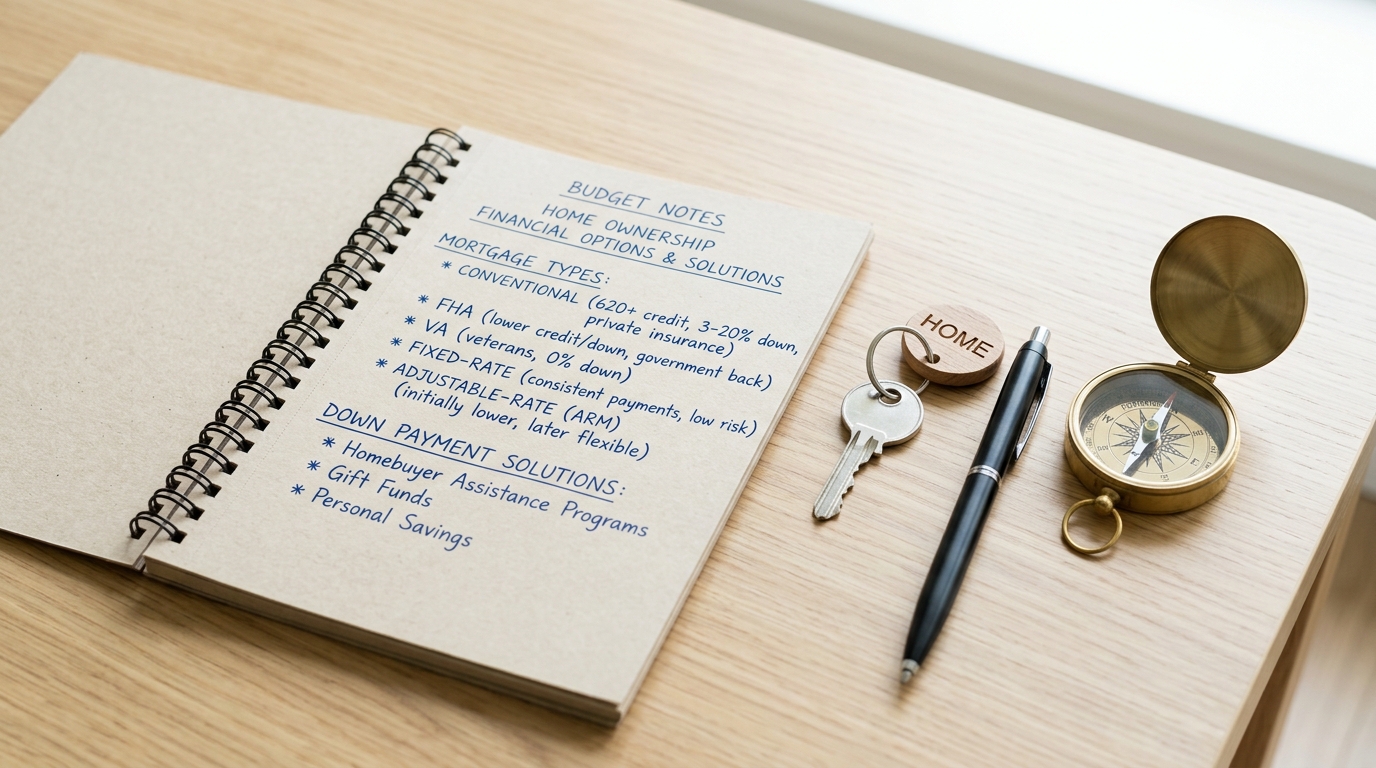 BUDGET NOTES
HOME OWNERSHIP
FINANCIAL OPTIONS & SOLUTIONS
MORTGAGE TYPES:
* CONVENTIONAL (620+ credit, 3-20% down,
private insurance)
* FHA (lower credit/down, government back)
* VA (veterans, 0% down)
* FIXED-RATE (consistent payments, low risk)
* ADJUSTABLE-RATE (ARM)
(initially lower, later flexible)
DOWN PAYMENT SOLUTIONS:
* Homebuyer Assistance Programs
* Gift Funds
* Personal Savings
HOME